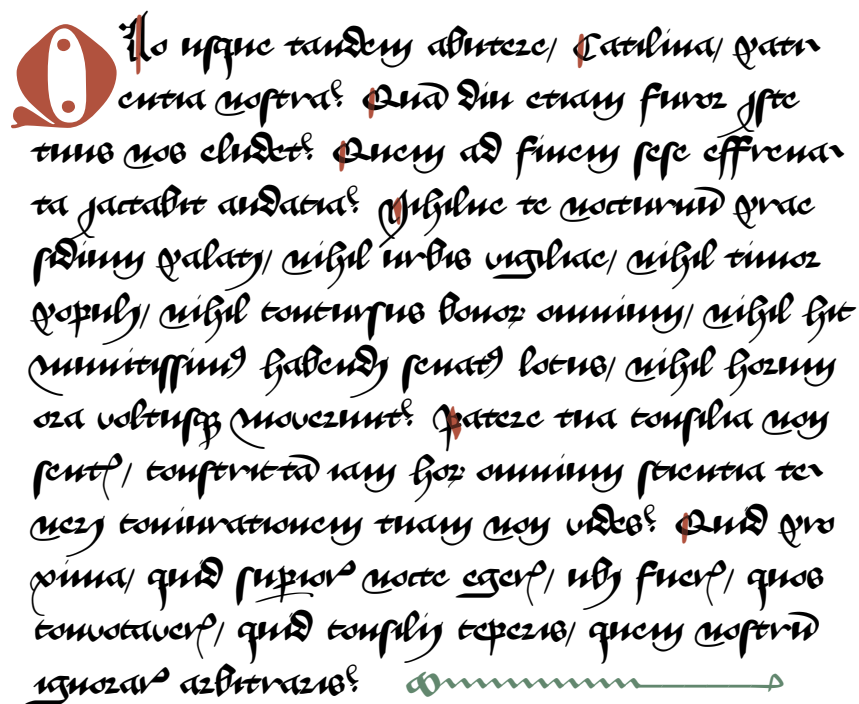 QUo usque tandem abutere/ Catilina/ pati
entia nostra? Quā diu etiam furor iste
tuus nos eludet? Quem ad finem sese effrena
ta jactabit audacia? Nihilne te nocturnū prae
sidium palatj/ nihil urbis vigiliae/ nihil timor
populj/ nihil concursus bonoꝝ omnium/ nihil hic
munitissimꝰ habendj senatꝰ locus/ nihil horum
ora voltusqꝫ moverunt? Patere tua consilia non
sentꝭ/ constrictā iam hoꝝ omnium scientia te
nerj coniurationem tuam non vides? Quid pro
xima/ quid suꝑiorꝭ nocte egerꝭ/ ubj fuerꝭ/ quos
convocaverꝭ/ quid consilij ceperis/ quem nostrū
ignorarꝭ arbitraris?